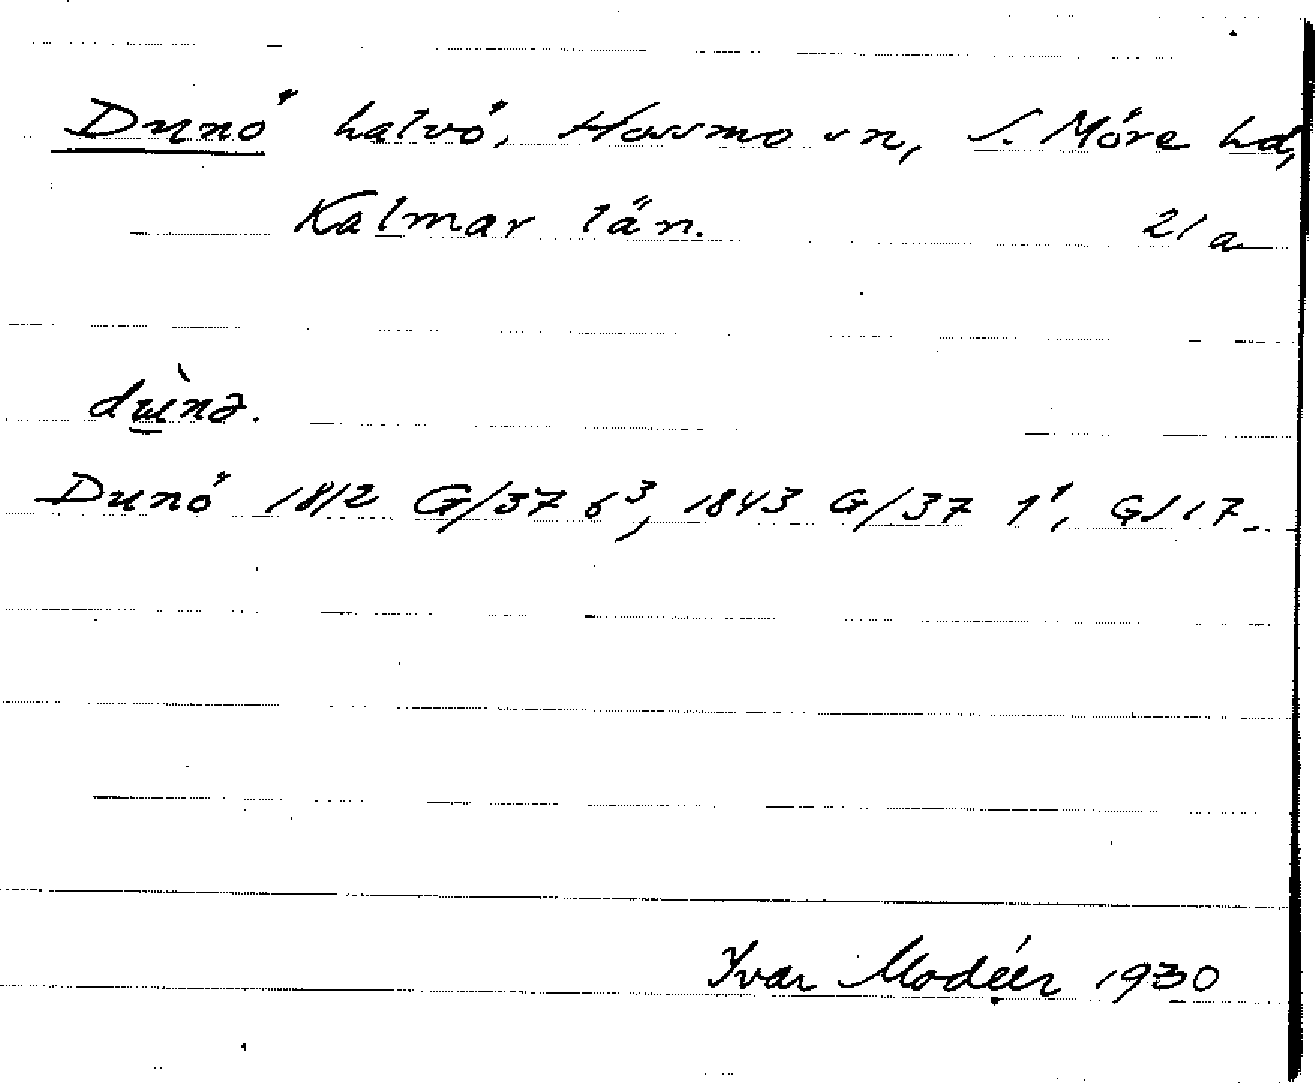 Dunö halvö, Hossmo sn, S. Möre hd,
Kalmar län. 21 a
dɯ̀nə.
Dunö 1812 G/37 6³, 1843 G/37 1¹, GS 17
Ivar Modéer 1930